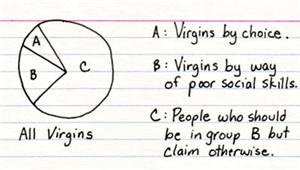 A
B
C
All Virgins
A: Virgins by choice.
B: Virgins by way
of poor social skills.
C: People who should
be in group B but
claim otherwise.